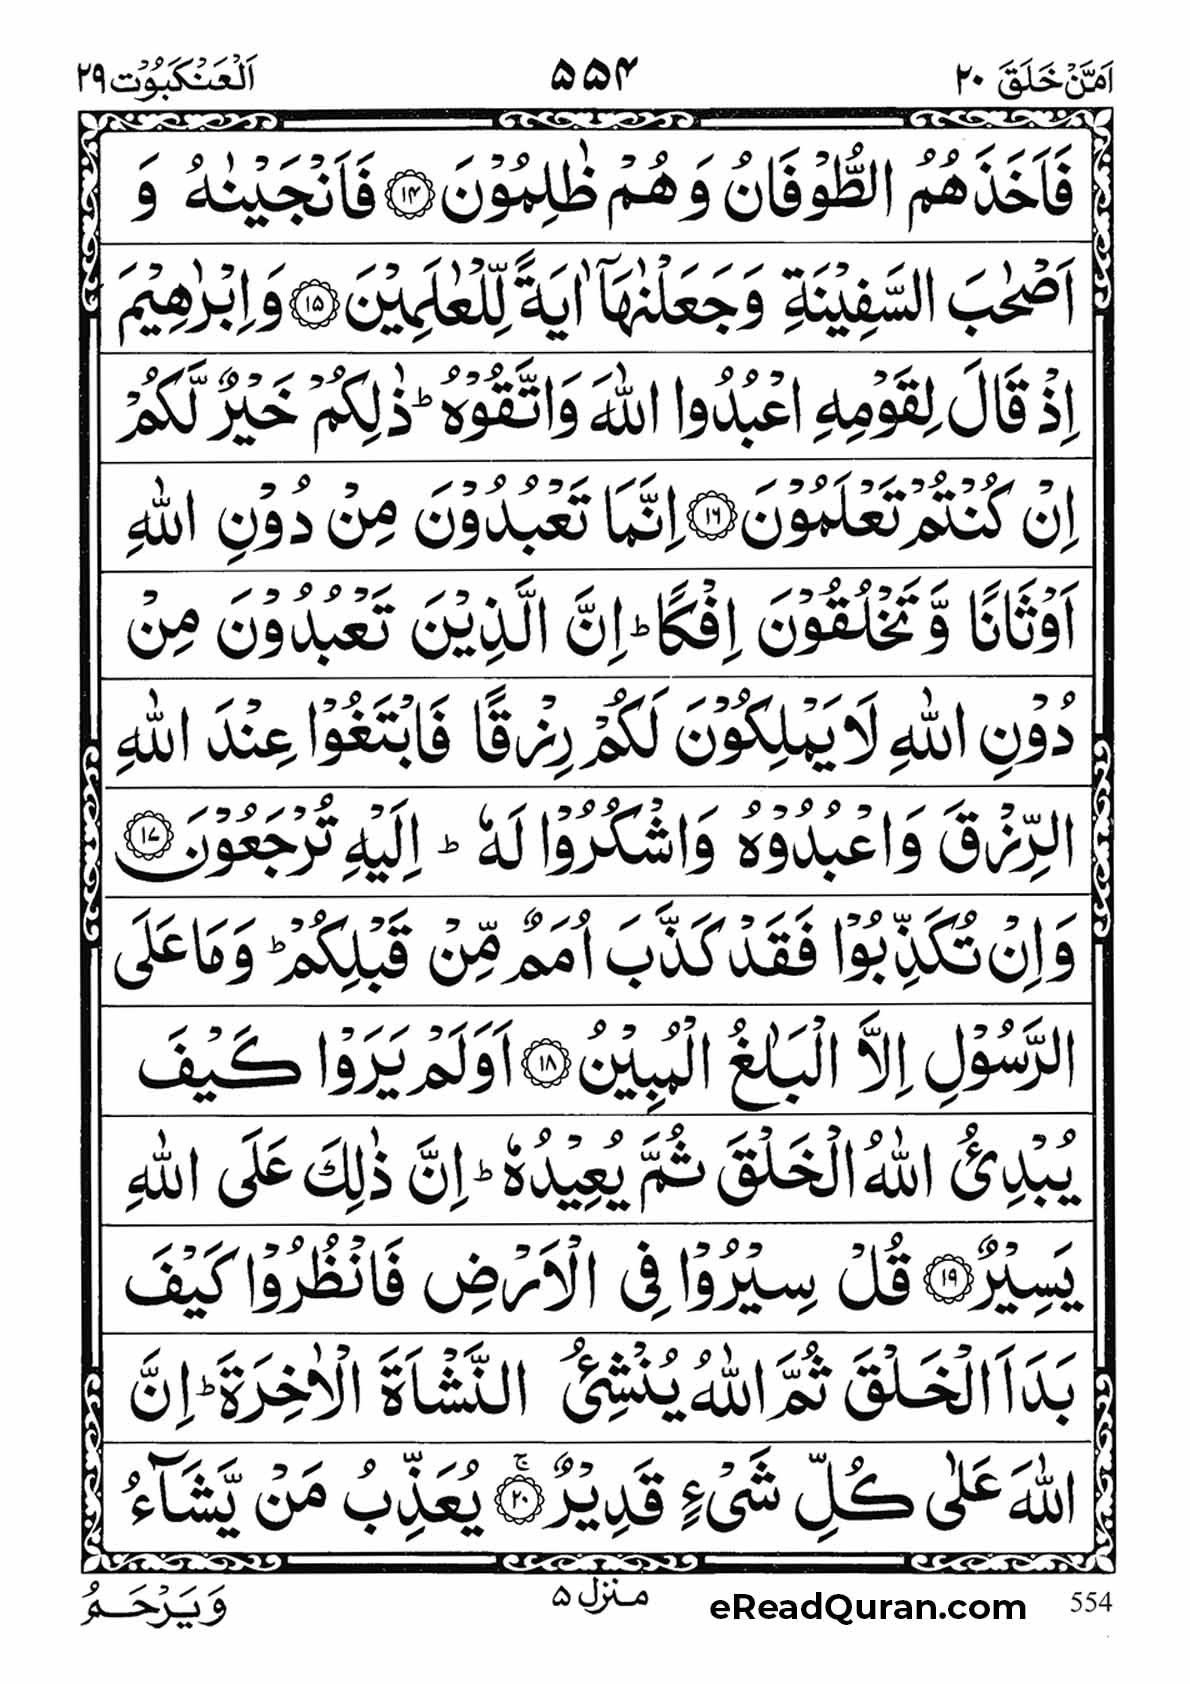 اَمَّنْ خَلَقَ ۲۰ ۵۵۴ اَلْعَنْكَبُوْت ۲۹
فَاَخَذَهُمُ الطُّوْفَانُ وَهُمْ ظٰلِمُوْنَ ۱۴ فَاَنْجَيْنٰهُ وَ
اَصْحٰبَ السَّفِيْنَةِ وَجَعَلْنٰهَاۤ اٰيَةً لِّلْعٰلَمِيْنَ ۱۵ وَاِبْرٰهِيْمَ
اِذْ قَالَ لِقَوْمِهِ اعْبُدُوا اللّٰهَ وَاتَّقُوْهُ ؕ ذٰلِكُمْ خَيْرٌ لَّكُمْ
اِنْ كُنْتُمْ تَعْلَمُوْنَ ۱۶ اِنَّمَا تَعْبُدُوْنَ مِنْ دُوْنِ اللّٰهِ
اَوْثَانًا وَّتَخْلُقُوْنَ اِفْكًا ؕ اِنَّ الَّذِيْنَ تَعْبُدُوْنَ مِنْ
دُوْنِ اللّٰهِ لَا يَمْلِكُوْنَ لَكُمْ رِزْقًا فَابْتَغُوْا عِنْدَ اللّٰهِ
الرِّزْقَ وَاعْبُدُوْهُ وَاشْكُرُوْا لَهٗ ؕ اِلَيْهِ تُرْجَعُوْنَ ۱۷
وَاِنْ تُكَذِّبُوْا فَقَدْ كَذَّبَ اُمَمٌ مِّنْ قَبْلِكُمْ ؕ وَمَا عَلَى
الرَّسُوْلِ اِلَّا الْبَلٰغُ الْمُبِيْنُ ۱۸ اَوَلَمْ يَرَوْا كَيْفَ
يُبْدِئُ اللّٰهُ الْخَلْقَ ثُمَّ يُعِيْدُهٗ ؕ اِنَّ ذٰلِكَ عَلَى اللّٰهِ
يَسِيْرٌ ۱۹ قُلْ سِيْرُوْا فِى الْاَرْضِ فَانْظُرُوْا كَيْفَ
بَدَاَ الْخَلْقَ ثُمَّ اللّٰهُ يُنْشِئُ النَّشْاَةَ الْاٰخِرَةَ ؕ اِنَّ
اللّٰهَ عَلٰى كُلِّ شَىْءٍ قَدِيْرٌ ۚ ۲۰ يُعَذِّبُ مَنْ يَّشَآءُ
وَيَرْحَمُ منزل ۵ eReadQuran.com 554